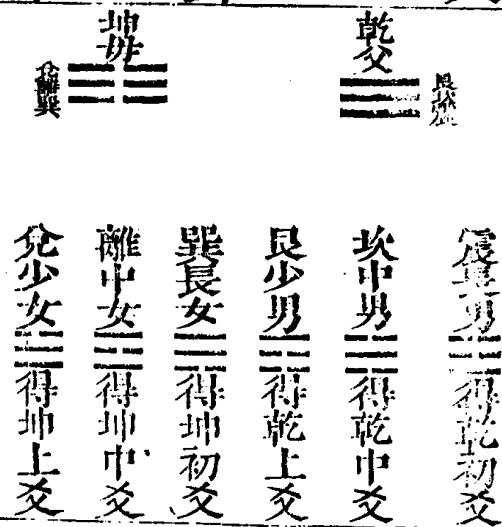 乾父
艮坎震
坤母
兌離巽
震長男
得乾初爻
坎中男
得乾中爻
艮少男
得乾上爻
巽長女
得坤初爻
離中女
得坤中爻
兌少女
得坤上爻